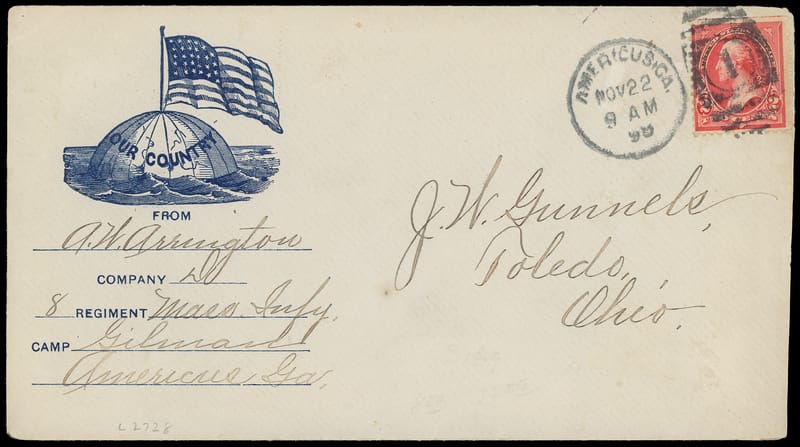 OUR COUNTRY
FROM
A.W. Arrington
COMPANY D
8 REGIMENT Mass. Infy.
CAMP Gilman
Americus Ga.
AMERICUS, GA.
NOV 22
9 AM
98
1
J. W. Gunnels,
Toledo,
Ohio.
L2728